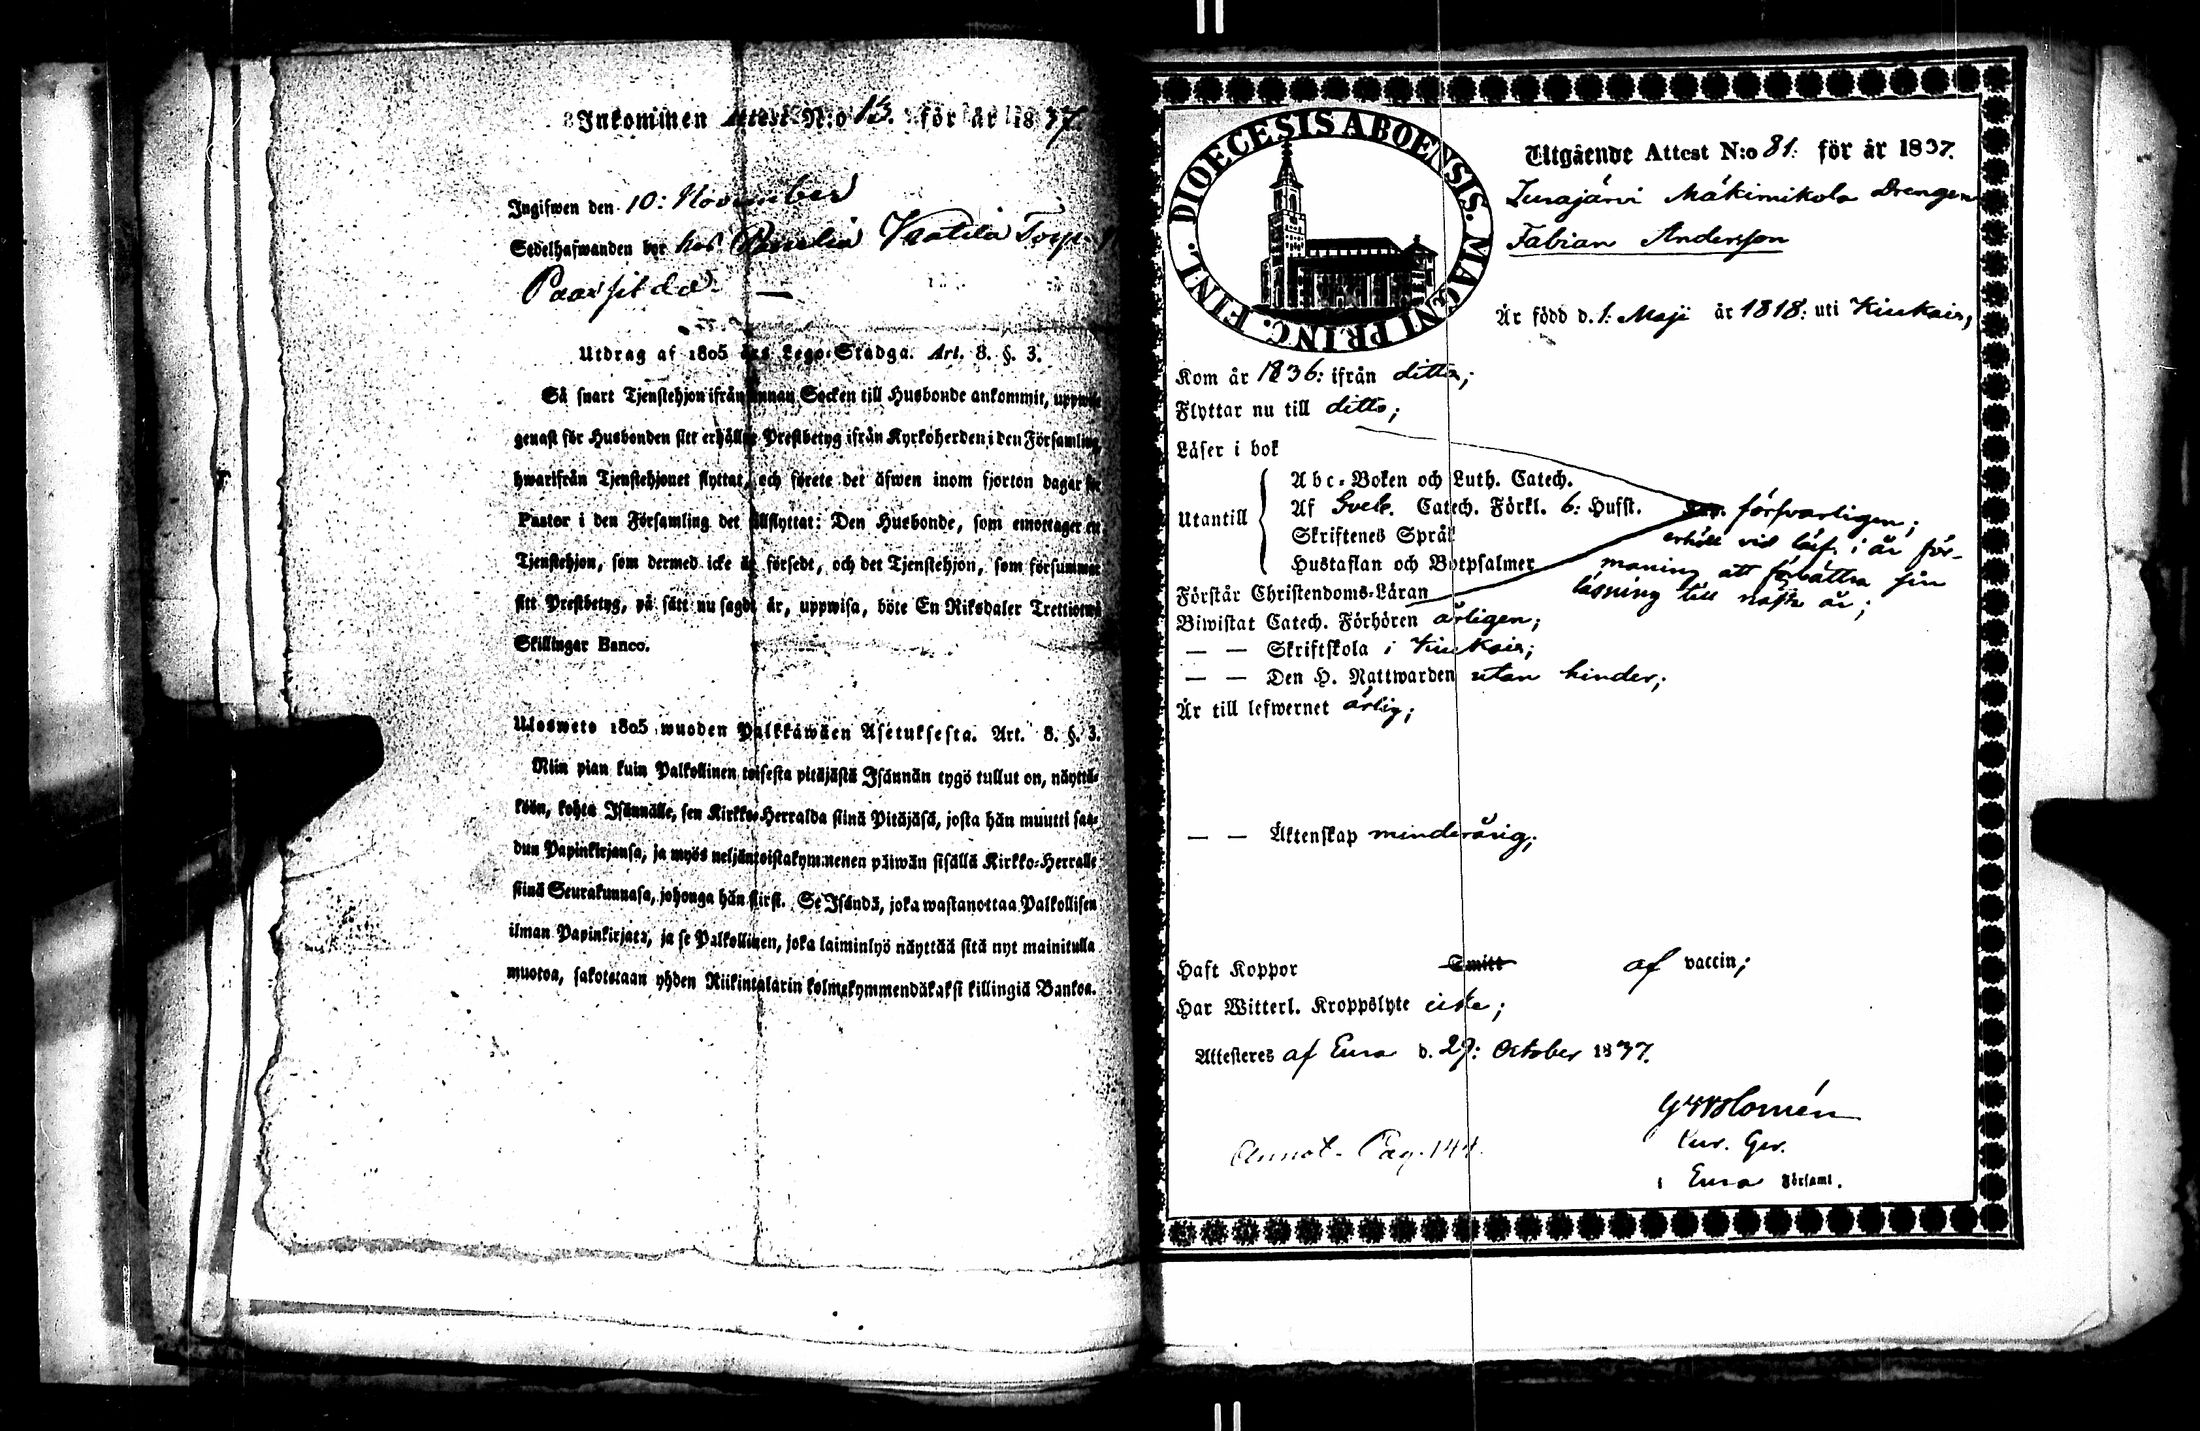 Inkommen Attest N:o 13. för år 1837.
Ingifwen den 10: November
Sedelhafwanden bor hos Torp.
Utdrag af 1805 års Lego-Stadga. Art. 8. §. 3.
Så snart Tjenstehjon ifrån annan Socken till Husbonde ankommit, uppwise
genast för Husbonden sitt erhållne Prestbetyg ifrån Kyrkoherden i den Församling,
hwarifrån Tjenstehjonet flyttat, och förete det äfwen inom fjorton dagar för
Pastor i den Församling det tillflyttat: Den Husbonde, som emottager ett
Tjenstehjon, som dermed icke är försedt, och det Tjenstehjon, som försummat
sitt Prestbetyg, på sätt nu sagdt är, uppwisa, böte En Riksdaler Trettiotwå
Skillingar Banco.
Ulosweto 1805 wuoden Palkkawäen Asetuksesta. Art. 8. §. 3.
Niin pian kuin Palkollinen toisesta pitäjästä Isännän tygö tullut on, näyttä-
köön, kohta Isännälle, sen Kirkko-Herralda siinä Pitäjäsä, josta hän muutti saa-
dun Papinkirjansa, ja myös neljäntoistakymmenen päiwän sisällä Kirkko-Herralle
siinä Seurakunnasa, johonga hän siirst. Se Isändä, joka wastanottaa Palkollisen
ilman Papinkirjata, ja se Palkollinen, joka laiminlyö näyttää sitä nyt mainitulla
muotoa, sakotetaan yhden Riikintalarin kolmekymmendäkaksi killingiä Bankoa.
DIOECESIS ABOENSIS. MAGNI PRINC. FINL.
Utgående Attest N:o 81: för år 1837.
Eurajärvi Mäkimikola Drengen
Fabian Andersson
Är född d. 1: Maji år 1818: uti Kiukais,
Kom år 1836: ifrån ditto;
Flyttar nu till ditto;
Läser i bok
Utantill
Abc-Boken och Luth. Catech.
Af Sveb. Catech. Förkl. 6: Hufst.
Skriftenes Språk
Hustaflan och Botpsalmer
Förstår Christendoms-Läran
försvarligen;
erhöll vid läsf. i år för-
maning att förbättra sin
läsning till näste år;
Biwistat Catech. Förhören årligen;
— — Skriftskola i Kiukais;
— — Den H. Nattwarden utan hinder;
Är till lefwernet ärlig;
— — Äktenskap minderårig;
Haft Koppor Smitt af vaccin;
Har Witterl. Kroppslyte icke;
Attesteres af Eura d. 29: October 1837.
Homén
Annot. Pag. 144.
i Eura Församl.